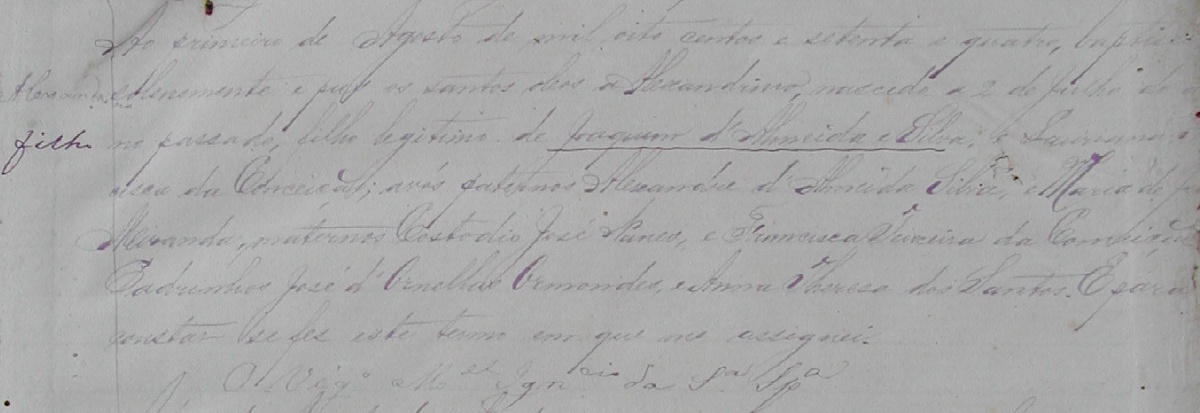 Ao primeiro de Agosto de mil oito centos e setenta e quatro, baptisei
solenemente e puz os santos oleos a Alexandrino, nascido a 2 de Julho do a
filho no passado, filho legitimo de Joaquim d'Almeida e Silva, e
da Conceição; avós paternos Alexandre d'Almeida Silva, e Maria de
Miranda, maternos Costodio José Nunes, e Francisca Teixeira da Conceição
Padrinhos José d'Ornellas Ormondes, e Anna Thereza dos Santos. E para
constar se fes este termo em que me assignei.
O Vigº Mel Igncio da Sª